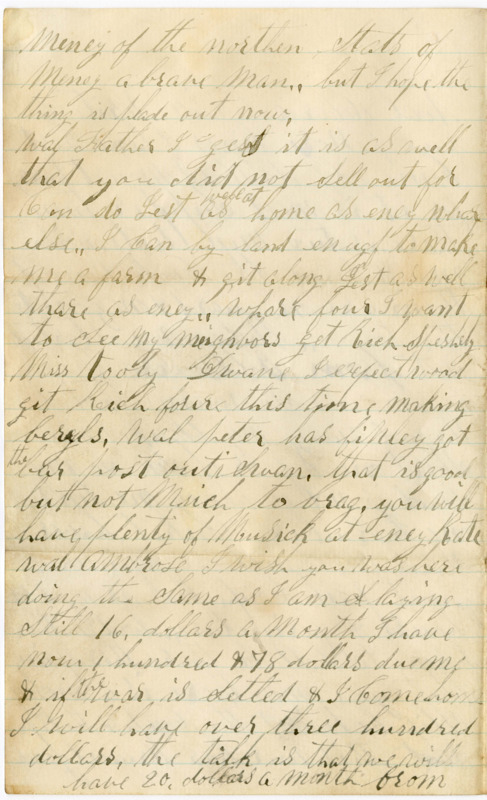 meney of the northen Stats of
Meney a brave man,, but I hope the
thing is plade out now,
Wal Father I gest it is as well
that you did not sell out for I
Can do Jest as well at home as eney whar
else,, I Can by land enugh to make
me a farm & git along Jest as well
thare as eney,, whare four I want
to See my neighbors get Rich Speshely
Miss tooly I expect wood
git Rich foure this time making
Wal peter has finley got
the bar post out that is good
but not Much to brag, you will
have plenty of Mousick at eney Rate
wal Ambrose I wish you was here
doing the Same as I am laying
Still 16, dollars a Month I have
now 1 hundred & 78 dollars due me
& if the war is Setled & I Come home
I will have over three hundred
dollars, the talk is that we will
have 20, dollars a month from